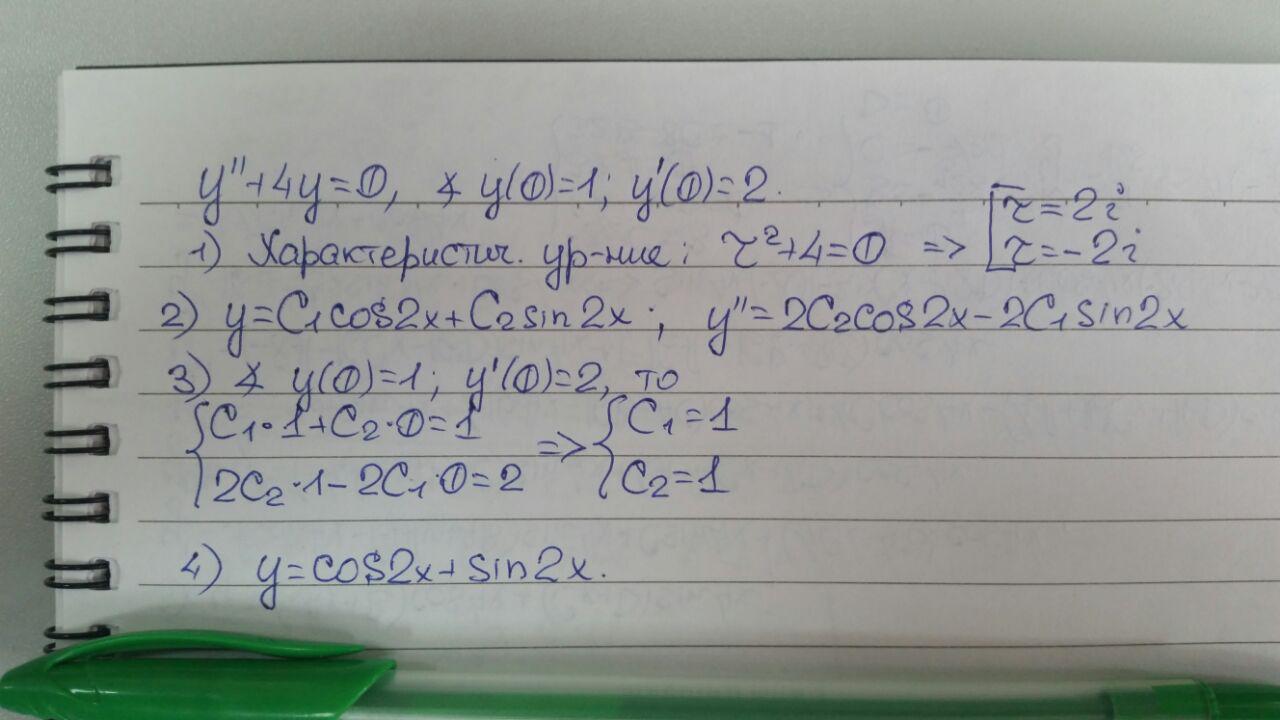 y''+4y=0, ∡ y(0)=1; y'(0)=2.
1) Характеристич. ур-ние: r²+4=0 => [r=2i r=-2i
2) y=C₁cos2x+C₂sin2x; y''=2C₂cos2x-2C₁sin2x
3) ∡ y(0)=1; y'(0)=2, то
{C₁·1+C₂·0=1 => {C₁=1
2C₂·1-2C₁·0=2 C₂=1
4) y=cos2x+sin2x.